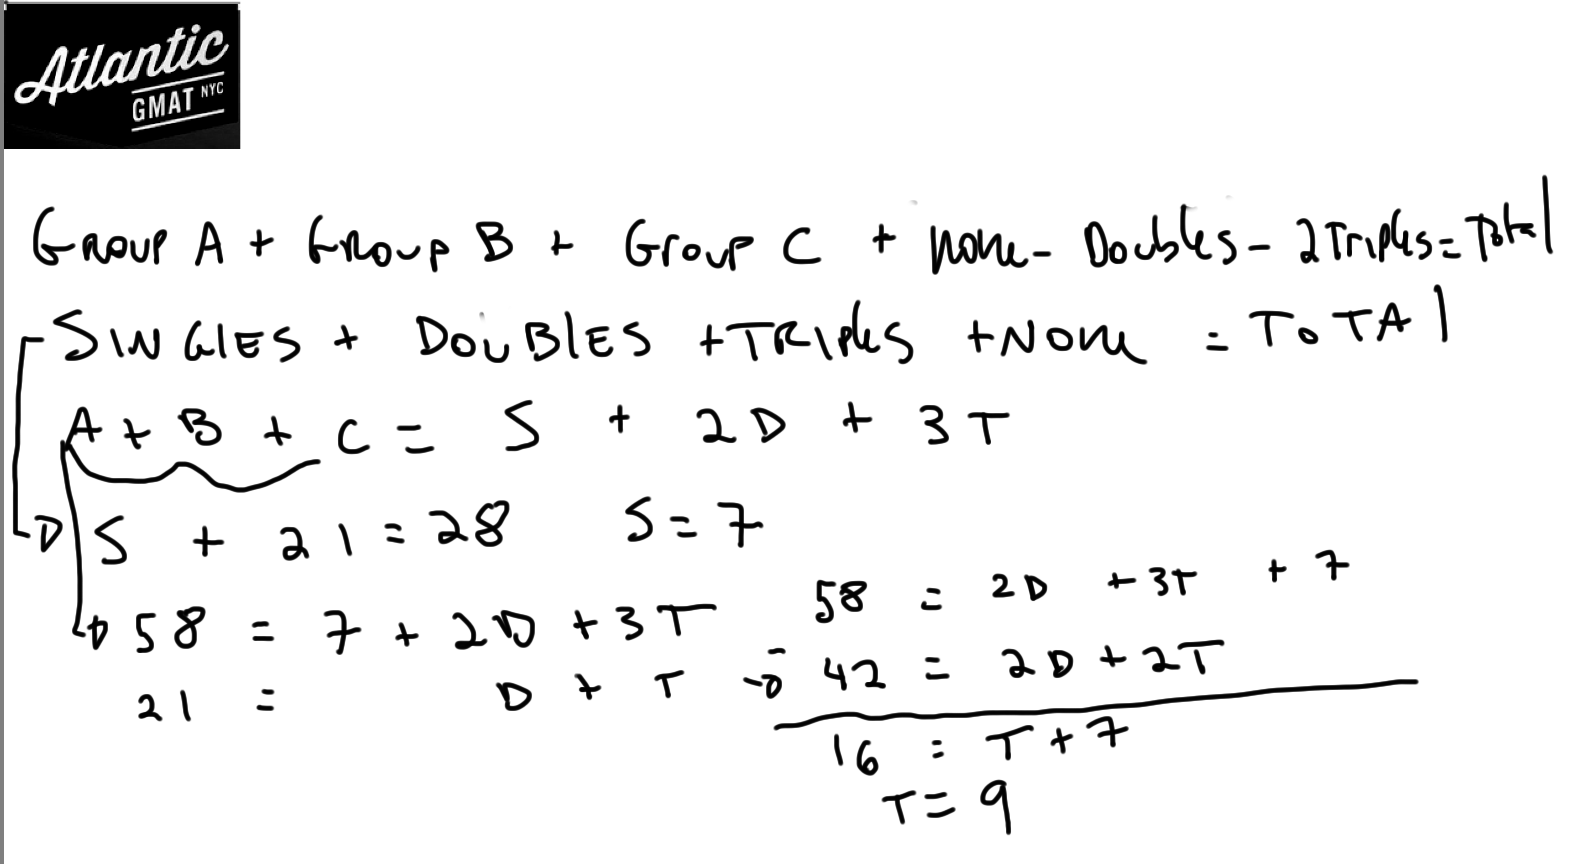 Atlantic
GMAT NYC
Group A + Group B + Group C + none - Doubles - 2 Triples = Total
SINGlES + DOUBlES + TRIples + None = ToTAl
A + B + C = S + 2D + 3T
S + 21 = 28 S = 7
58 = 7 + 2D + 3T
21 = D + T
58 = 2D + 3T + 7
- 42 = 2D + 2T
16 = T + 7
T = 9